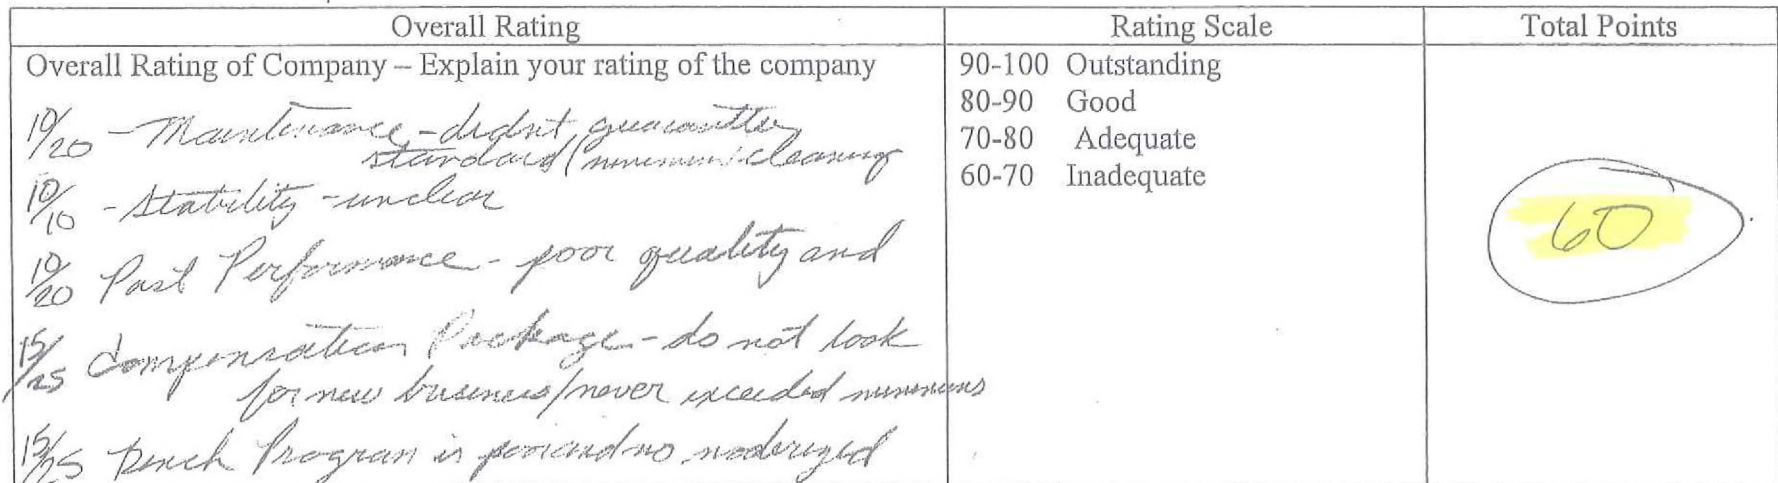 Overall Rating
Rating Scale
Total Points
Overall Rating of Company – Explain your rating of the company
10/20 - Maintenance - didn't guarantee
standard/minimum cleaning
10/10 - Stability - unclear
10/20 Past Performance - poor quality and
15/25 Compensation Package - do not look
for new business/never exceeded minimums
15/25 Bench Program is poor and no moderized
90-100 Outstanding
80-90 Good
70-80 Adequate
60-70 Inadequate
60